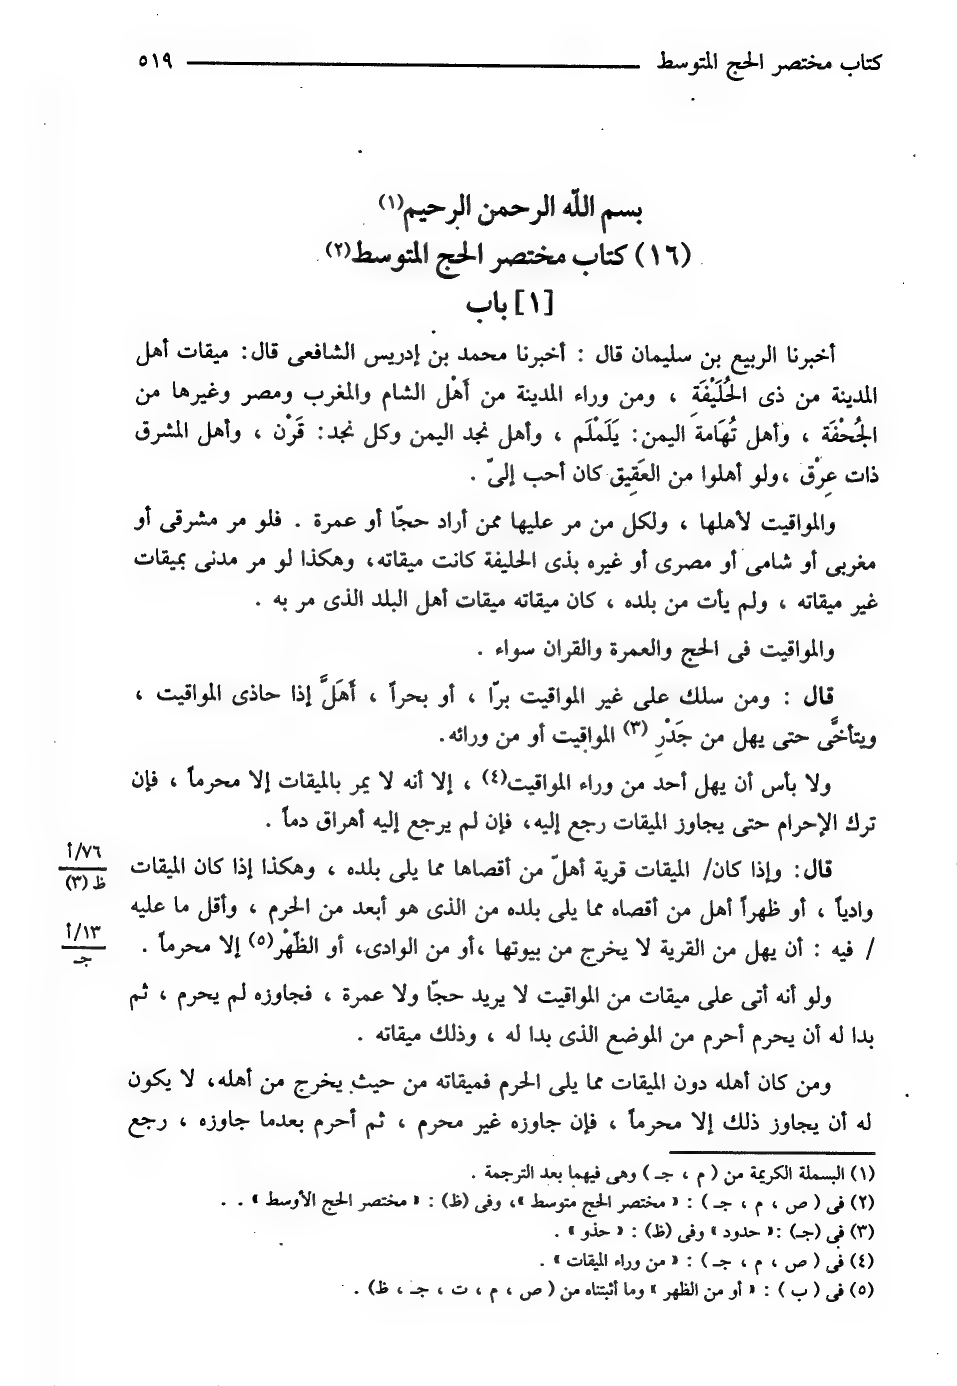 كتاب مختصر الحج المتوسط ــــــــــــــــــــــــــــــــ ٥١٩
بسم الله الرحمن الرحيم(١)
(١٦) كتاب مختصر الحج المتوسط(٢)
[١] باب
أخبرنا الربيع بن سليمان قال : أخبرنا محمد بن إدريس الشافعى قال: ميقات أهل
المدينة من ذى الحُلَيْفَةِ ، ومن وراء المدينة من أَهْل الشام والمغرب ومصر وغيرها من
الجُحْفَة ، وأهل تُهَامة اليمن: يَلَمْلَم ، وأهل نجد اليمن وكل نجد: قَرْن ، وأهل المشرق
ذات عِرْق ،ولو أهلوا من العَقِيق كان أحب إلىّ .
والمواقيت لأهلها ، ولكل من مر عليها ممن أراد حجّا أو عمرة . فلو مر مشرقى أو
مغربى أو شامى أو مصرى أو غيره بذى الحليفة كانت ميقاته، وهكذا لو مر مدنى بميقات
غير ميقاته ، ولم يأت من بلده ، كان ميقاته ميقات أهل البلد الذى مر به .
والمواقيت فى الحج والعمرة والقران سواء .
قال : ومن سلك على غير المواقيت برّا ، أو بحراً ، أَهَلَّ إذا حاذى المواقيت ،
ويتأخَّى حتى يهل من جَدْرِ (٣) المواقيت أو من ورائه.
ولا بأس أن يهل أحد من وراء المواقيت(٤) ، إلا أنه لا يمر بالميقات إلا محرماً ، فإن
ترك الإحرام حتى يجاوز الميقات رجع إليه، فإن لم يرجع إليه أهراق دماً .
قال: وإذا كان/ الميقات قرية أهلّ من أقصاها مما يلى بلده ، وهكذا إذا كان الميقات
٧٦/أ
ظ (٣)
وادياً ، أو ظهراً أهل من أقصاه مما يلى بلده من الذى هو أبعد من الحرم ، وأقل ما عليه
/ فيه : أن يهل من القرية لا يخرج من بيوتها ،أو من الوادى، أو الظَهْر(٥) إلا محرماً .
١٣/أ
جـ
ولو أنه أتى على ميقات من المواقيت لا يريد حجّا ولا عمرة ، فجاوزه لم يحرم ، ثم
بدا له أن يحرم أحرم من الموضع الذى بدا له ، وذلك ميقاته .
ومن كان أهله دون الميقات مما يلى الحرم فميقاته من حيث يخرج من أهله، لا يكون
له أن يجاوز ذلك إلا محرماً ، فإن جاوزه غير محرم ، ثم أحرم بعدما جاوزه ، رجع
(١) البسملة الكريمة من ( م ، جـ ) وهى فيهما بعد الترجمة .
(٢) فى ( ص ، م ، جـ ) : « مختصر الحج متوسط »، وفى (ظ) : « مختصر الحج الأوسط » .
(٣) فى (جـ) :« حدود » وفى (ظ) : « حذو » .
(٤) فى ( ص ، م ، جـ ) : « من وراء الميقات » .
(٥) فى ( ب ) : « أو من الظهر » وما أثبتناه من ( ص ، م ، ت ، جـ ، ظ) .